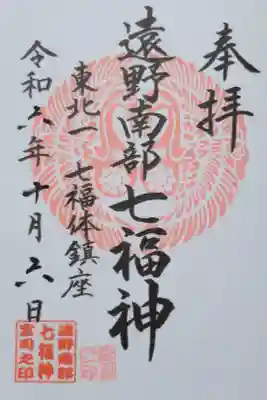 奉拝
遠野南部七福神
東北一 七福体鎮座
令和六年十月六日
遠野南部
七福神
宮司之印